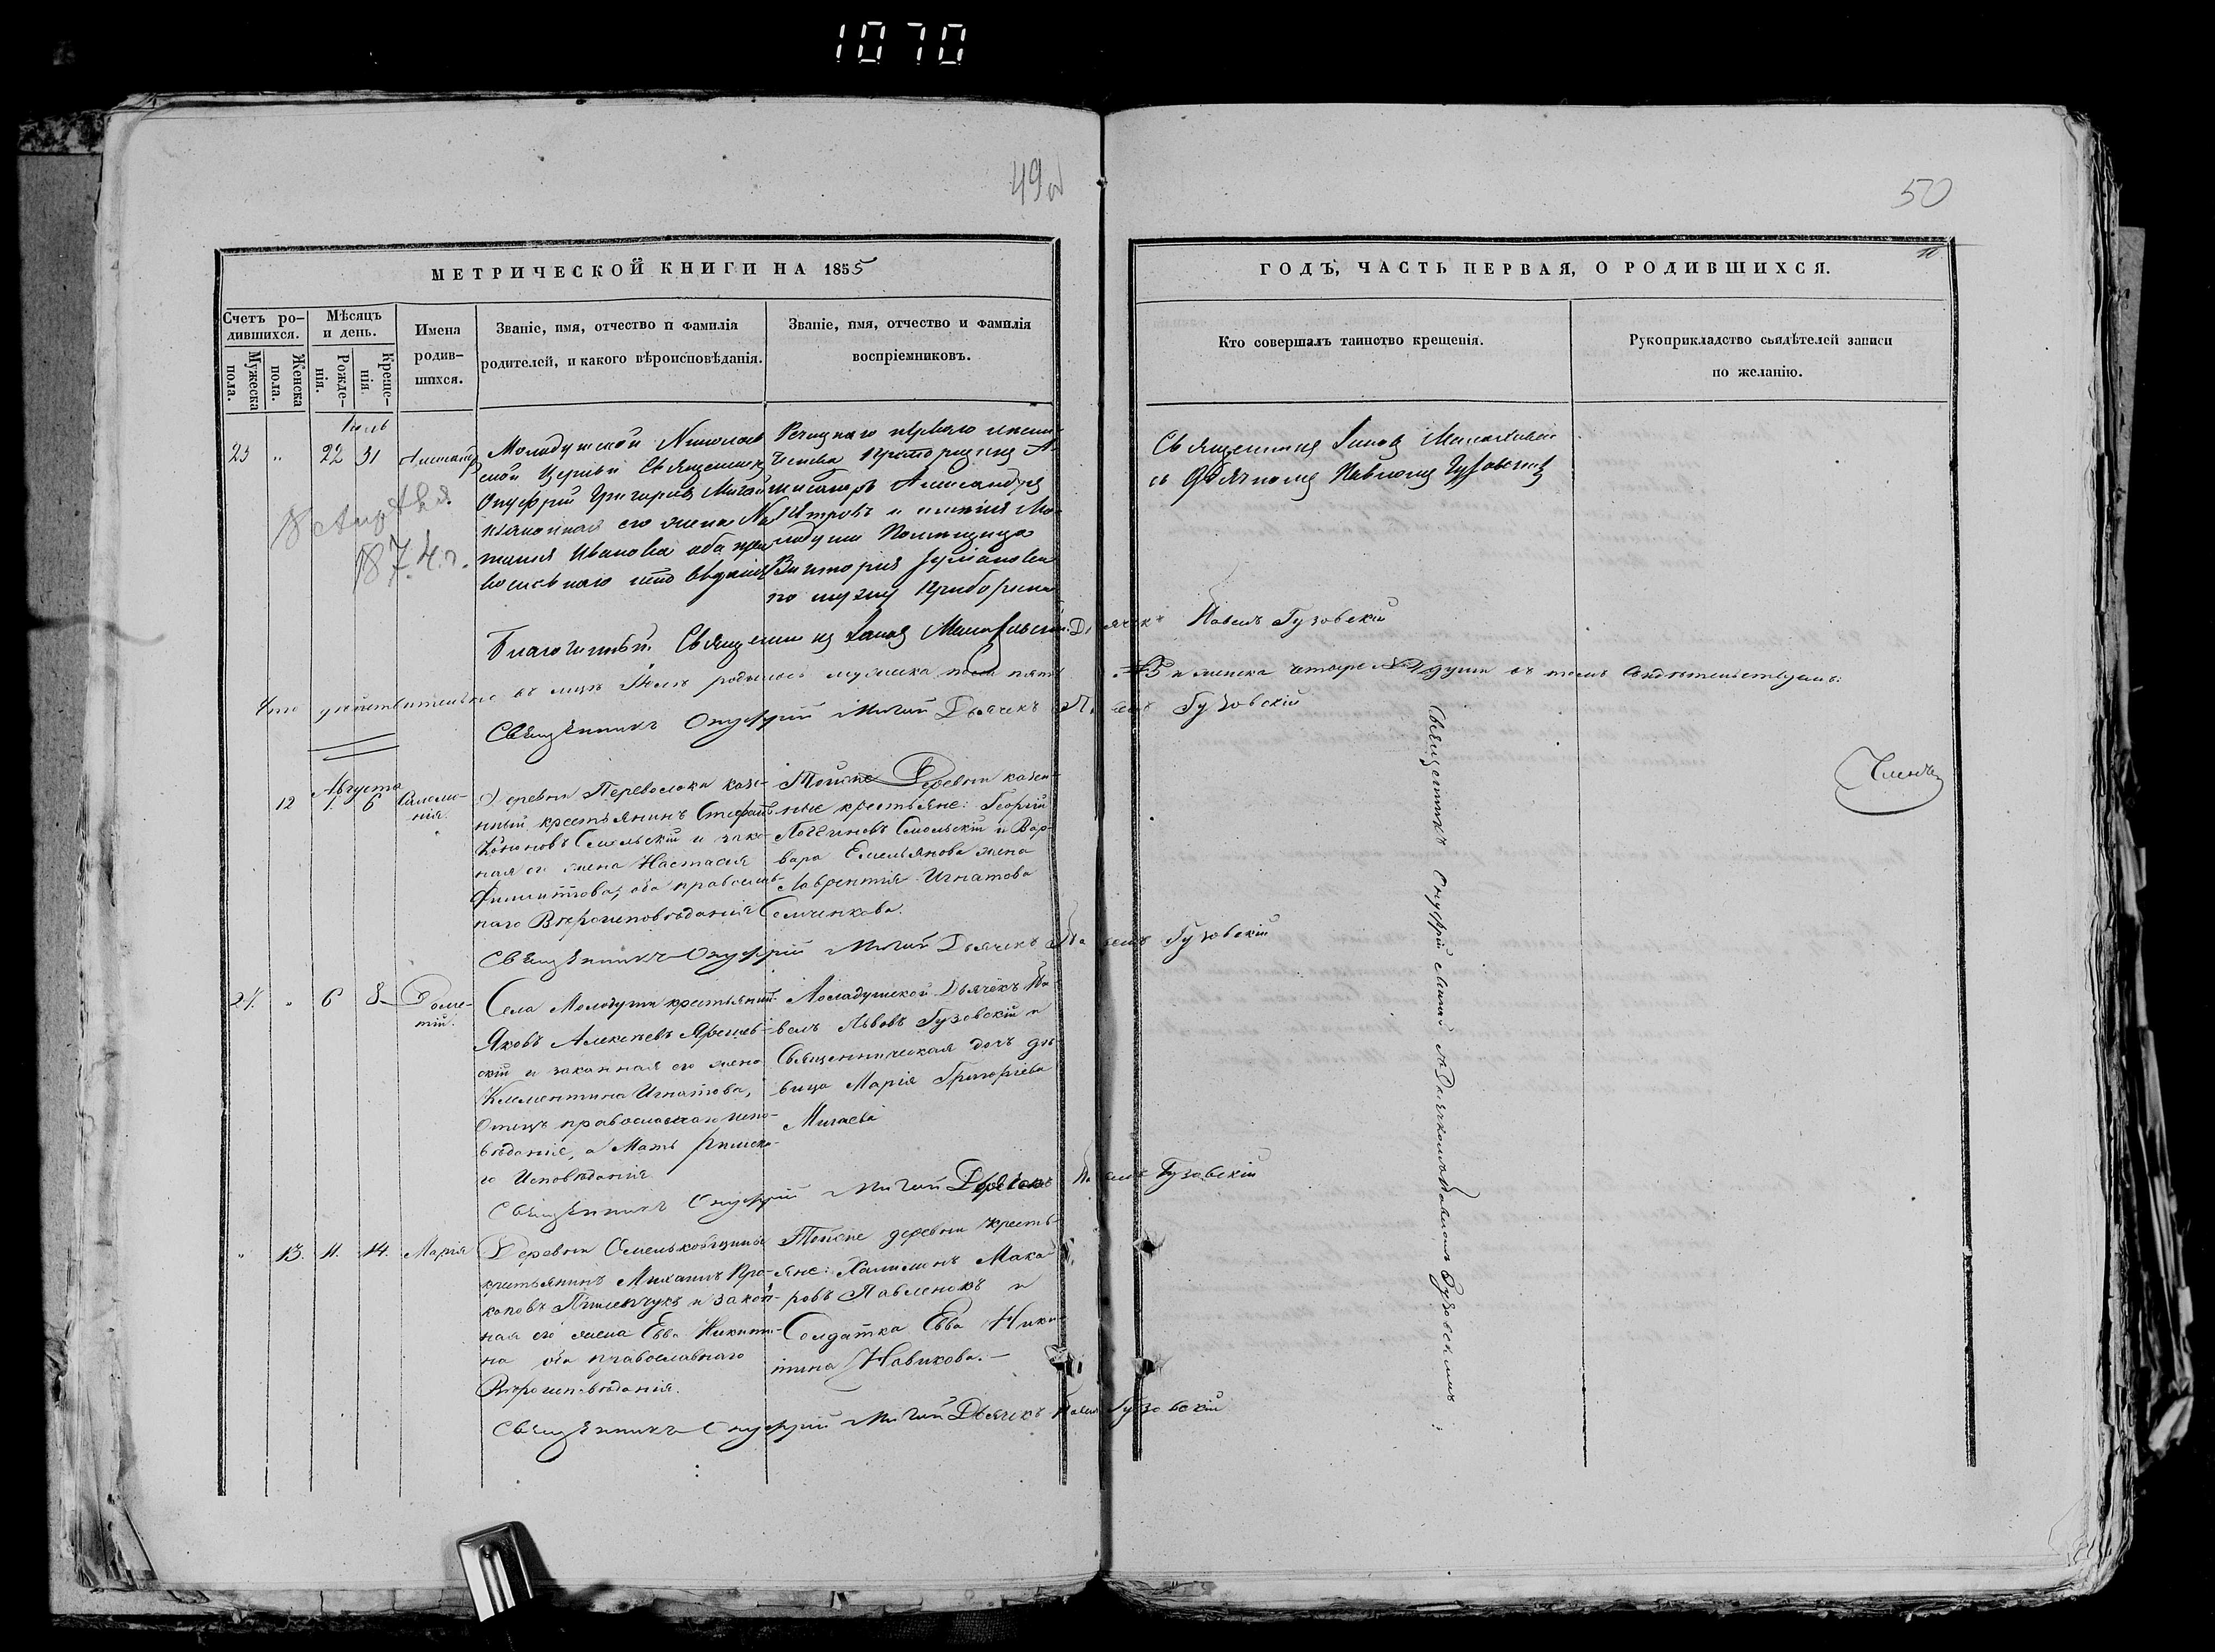 1070
49об
50
МЕТРИЧЕСКОЙ КНИГИ НА 1855
ГОДЪ, ЧАСТЬ ПЕРВАЯ, О РОДИВШИХСЯ.
10
Счетъ ро-
дившихся.
Мужеска пола.
Женска пола.
Мѣсяцъ
и день.
Рожде-
нія.
Креще-
нія.
Имена
родив-
шихся.
Званіе, имя, отчество и фамилія
родителей, и какого вѣроисповѣданія.
Званіе, имя, отчество и фамилія
воспріемниковъ.
Кто совершалъ таинство крещенія.
Рукоприкладство свидѣтелей записи
по желанію.
Іюль
23 " 22 31 Александр
Молодушской Николаев
ской Церкви Священник
Онуфрій Григорьев Мигай
и законная его жена На
талія Иванова оба пра
вославного
18 Апрѣля
1874 г.
Александра
Петровъ и имѣнія Мо-
лодуши Помещица
Викторія
по мужу
Священник
съ Дьячкомъ Павломъ Гузовским
Благочинный Священник
Дьячекъ Павелъ Гузовскій
Что дѣйствительно въ мцѣ Іюлѣ родилось мужеска пола пять № 5 и женска четыре № 4 души въ томъ свидѣтельствуемъ:
Священникъ Онуфрій Мигай Дьячекъ Павелъ Гузовскій
Августа
12 1. 6 Соломо-
нія.
Деревни Переволока казен-
ный крестьянинъ Стефанъ
Кононовъ Смольскій и зако-
ная его жена Настасія
Филиппова, оба православ-
наго Вѣроисповѣданія
Тойже Деревни казен-
ные крестьяне: Георгій
Логгиновъ Смольскій и Вар-
вара Емельянова жена
Лаврентія Игнатова
Семченкова.
Священникъ Онуфрій Мигай Дьячекъ Павелъ Гузовскій
24. " 6 8 Доме-
тій.
Села Молодуши крестьянинъ
Яковъ Алексѣевъ
скій и законная его жена
Клементина Игнатова,
Отецъ православнаго испо-
вѣданія, а Мать Римска-
го Исповѣданія
Моладушской Дьячекъ Па-
велъ Львовъ Гузовскій и
Священническая дочь дѣ-
вица Марія Григорьева
Мигаева
Священникъ Онуфрій Мигай Дьячекъ Павелъ Гузовскій
" 13. 11. 14. Марія
Деревни Омельковщины
крестьянинъ Михаилъ Про-
коповъ Пилипчукъ и закон-
ная его жена Евва Никити-
на оба православнаго
Вѣроисповѣданія.
Тойже деревни кресть-
яне: Халимонъ Мака-
ровъ Павленокъ и
Солдатка Евва Ники-
тина Новикова.
Священникъ Онуфрій Мигай Дьячекъ Павелъ Гузовскій
Священникъ Онуфрій Мигай съ Дьячкомъ Павломъ Гузовскимъ